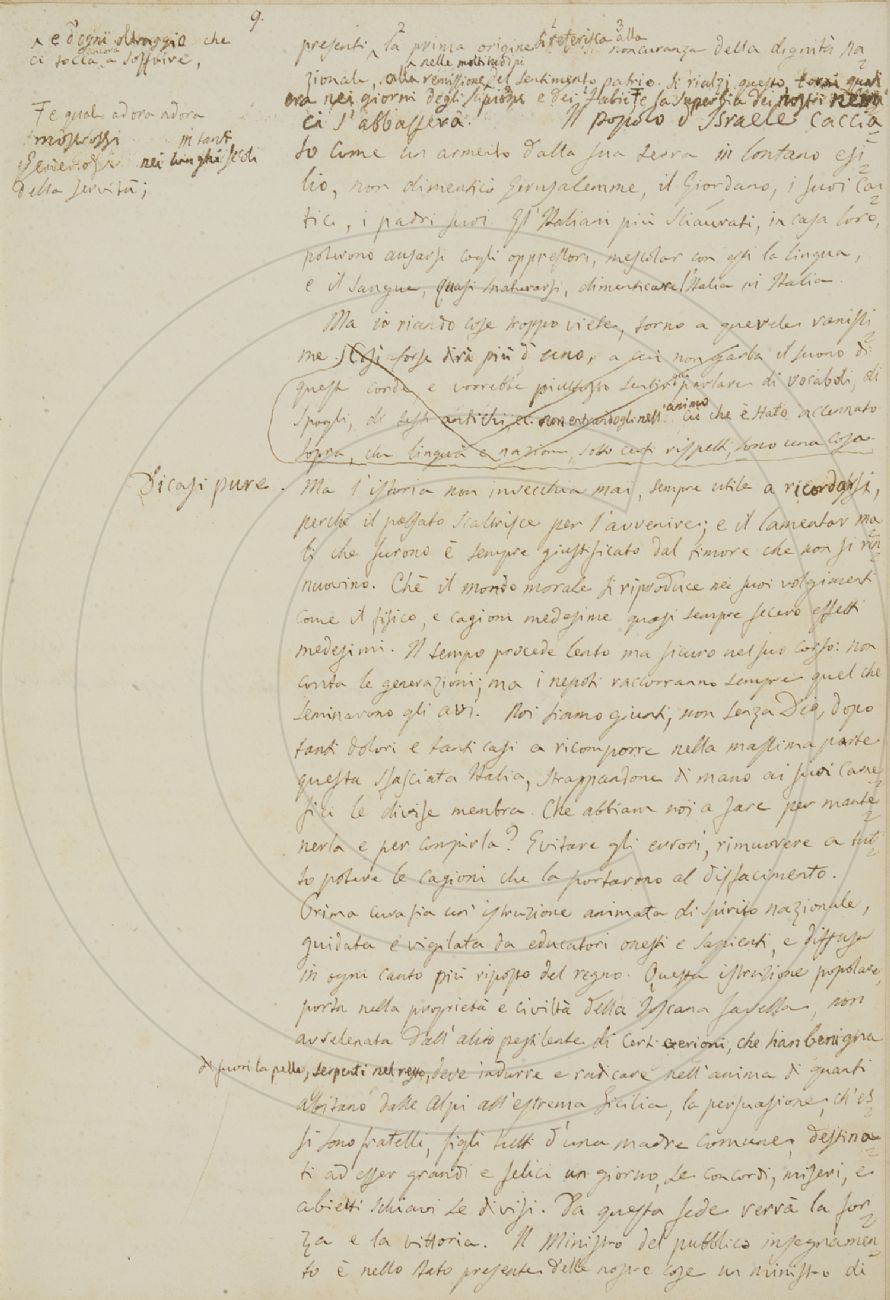 9.
^ e d'ogni oltraggio che
ci tocca ancora a soffrire,
F e qual adora adora
mostrossi in tanti
e nei lunghi secoli
della servitù;
presenti ^ la prima origine si riferisca alla noncuranza della dignità na
zionale, nelle moltitudini alla remissione del sentimento patrio. Si rialzi questo, torni qual
era nei giorni degli Scipioni e dei F e la superbia dei nostri nemi
ci s'abbasserà. Il popolo d'Israele caccia
to come un armento dalla sua terra in lontano esi
lio, non dimenticò Gerusalemme, il Giordano, i suoi Can
tici, i padri suoi. Gl'Italiani più sciaurati, in casa loro,
poterono ausarsi cogli oppressori, mescolar con essi la lingua,
e il sangue, quasi snaturarsi, dimenticare l'Italia in Italia.
Ma io ricordo cose troppo viete, torno a querele vanissi
me. Così forse dirà più d'uno, a cui non garba il suono di
queste corde e vorrebbe piuttosto sentir parlare di vocaboli, di
spogli, di testi antichi, ec. non entrandogli nell'animo ciò che è stato accennato
sopra, che lingua e nazione, sotto certi rispetti, sono una cosa.
Dicasi pure. Ma l'istoria non invecchia mai, sempre utile a ricordarsi,
perchè il passato scaltrisce per l'avvenire; e il lamentar ma
li che furono è sempre giustificato dal timore che non si rin
nuovino. Chè il mondo morale si riproduce nei suoi volgimenti
come il fisico, e cagioni medesime quasi sempre fecero effetti
medesimi. Il tempo procede lento ma sicuro nel suo corso: non
conta le generazioni; ma i nepoti raccorranno sempre quel che
seminarono gli avi. Noi siamo giunti, non senza Dio, dopo
tanti dolori e tanti casi a ricomporre nella massima parte
questa sfasciata Italia, strappandone di mano ai suoi carne
fici le divise membra. Che abbiam noi a fare per mante
nerla e per compirla? Evitare gli errori, rimuovere a tut
to potere le cagioni che la portarono al disfacimento.
Prima cura sia un'istruzione animata di spirito nazionale,
guidata e vigilata da educatori onesti e sapienti, e diffusa
in ogni canto più riposto del regno. Questa istruzione popolare,
porta nella proprietà e civiltà della Toscana favella, non
avvelenata dall'alito pestilente di certi Gerioni, che han benigna
di fuori la pelle, serpenti nel resto, deve indurre e radicare nell'anima di quanti
abitano dalle Alpi all'estrema Sicilia, la persuasione, ch'es
si sono fratelli, figli tutti d'una madre comune, destina
ti ad esser grandi e felici un giorno, se concordi, miseri, e
abietti schiavi se divisi. Da questa fede verrà la for
za e la vittoria. Il Ministro del pubblico insegnamen
to è nello stato presente delle nostre cose un ministro di